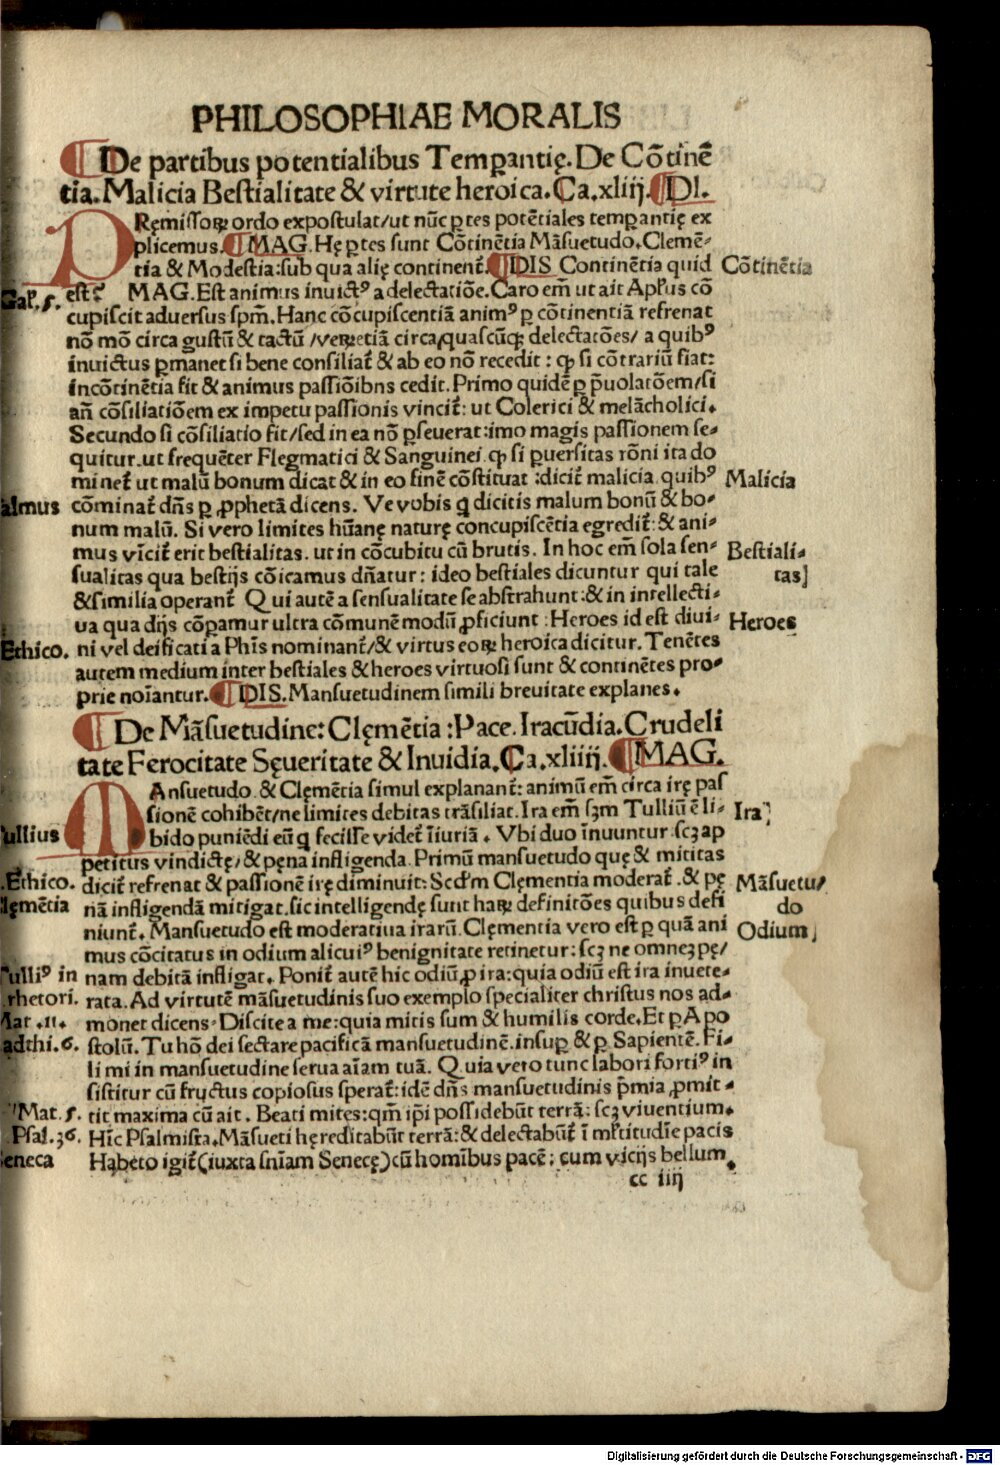 PHILOSOPHIAE MORALIS
¶ De partibus potentialibus Temꝑantię. De Cōtinē
tia. Malicia Bestialitate & virtute heroica. Ca. xliij. ¶ DI.
PRęmissoꝝ ordo expostulat/ut nūc ꝑtes potētiales temꝑantię ex
plicemus. ¶ MAG. Hę ꝑtes sunt Cōtinētia Māsuetudo. Clemē-
tia & Modestia: sub qua alię continent᷑. ¶ DIS Continētia quid
Cōtinētia
est? MAG. Est animus inuictꝰ a delectatiōe. Caro em̄ ut ait Apl'us cō
Gal'. 5.
cupiscit adversus sp̄m. Hanc cōcupiscentiā animꝰ ꝑ cōtinentiā refrenat
nō mō circa gustū & tactū /veꝝetiā circa quascūqꝫ delectatōes/ a quibꝰ
inuictus ꝑmanet si bene consiliat᷑ & ab eo nō recedit : ꝙ si cōtrariū fiat:
incōtinētia fit & animus passiōibns cedit. Primo quidē ꝑ p̄uolatōem/si
an̄ cōsiliatiōem ex impetu passionis vincit᷑: ut Colerici & melācholici.
Secundo si cōsiliatio fit/sed in ea nō ꝑseuerat: imo magis passionem se-
quitur. ut frequēter Flegmatici & Sanguinei. ꝙ si ꝑuersitas rōni ita do
minet᷑ ut malū bonum dicat & in eo finē cōstituat : dicit᷑ malicia. quibꝰ
Malicia
almus
cōminat᷑ dn̄s ꝑ ꝓphetā dicens. Ve vobis q̄ dicitis malum bonū & bo-
num malū. Si vero limites hūanę naturę concupiscētia egredit᷑: & ani-
mus vīcit᷑ erit bestialitas. ut in cōcubitu cū brutis. In hoc em̄ sola sen-
Bestiali-
sualitas qua bestijs cōicamus dn̄atur: ideo bestiales dicuntur qui tale
tas]
& similia operant᷑ Qui autē a sensualitate se abstrahunt : & in intellecti-
ua qua dijs cōꝑamur ultra cōmunē modū ꝓficiunt : Heroes id est diui-
Heroes
Ethico.
ni vel deificati a Phi̅s nominant᷑/& virtus eoꝝ heroica dicitur. Tenētes
autem medium inter bestiales & heroes virtuosi sunt & continētes pro-
prie noīantur. ¶ DIS. Mansuetudinem simili breuitate explanes.
¶ De Māsuetudine: Clęmētia : Pace. Iracūdia. Crudeli
tate Ferocitate Sęueritate & Inuidia. Ca. xliiij. ¶ MAG.
MAnsuetudo & Clęmētia simul explanant᷑: animū em̄ circa irę pas
sionē cohibēt/ne limites debitas trāsiliat. Ira em̄ sꝫm Tulliū ē li-
Ira]
ullius
bido puniēdi eū q̄ fecisse videt᷑ īiuriā. Vbi duo īnuuntur. scꝫ ap
petitus vindictę/ & pęna infligenda. Primū mansuetudo quę & mititas
.Ethico.
dicit᷑ refrenat & passionē irę diminuit: Scd'm Clęmentia moderat᷑. & pę
Māsuetu/
lęmētia
nā infligendā mitigat. sic intelligendę sunt haꝝ definitōes quibus defi
do
niunt᷑. Mansuetudo est moderatiua irarū. Clęmentia vero est ꝑ quā ani
Odium]
mus cōcitatus in odium alicuiꝰ benignitate retinetur: scꝫ ne omneꝫ pę/
Tulliꝰ in
nam debitā infligat. Ponit᷑ autē hic odiū ꝓ ira: quia odiū est ira inuete-
rhetori.
rata. Ad virtutē māsuetudinis suo exemplo specialiter christus nos ad-
Mat .11.
monet dicens. Discite a me: quia mitis sum & humilis corde. Et ꝑ Apo
adthi. 6.
stolū. Tu hō dei sectare pacificā mansuetudinē. insuꝑ & ꝑ Sapientē. Fi-
li mi in mansuetudine serua aīam tuā. Quia vero tunc labori fortiꝰ in
sistitur cū fructus copiosus sperat᷑: idē dn̄s mansuetudinis p̄mia ꝓmit-
Mat. 5.
tit maxima cū ait. Beati mites: qm̄ ip̄i possidebūt terrā: scꝫ viuentium.
Psal. 36.
Hīc Psalmista. Māsueti hęreditabūt terrā: & delectabūt᷑ ī ml'titudīe pacis
Seneca
Habeto igit᷑ (iuxta sn̄iam Senecę) cū homībus pacē: cum vicijs bellum.
cc iiij
Digitalisierung gefördert durch die Deutsche Forschungsgemeinschaft - DFG